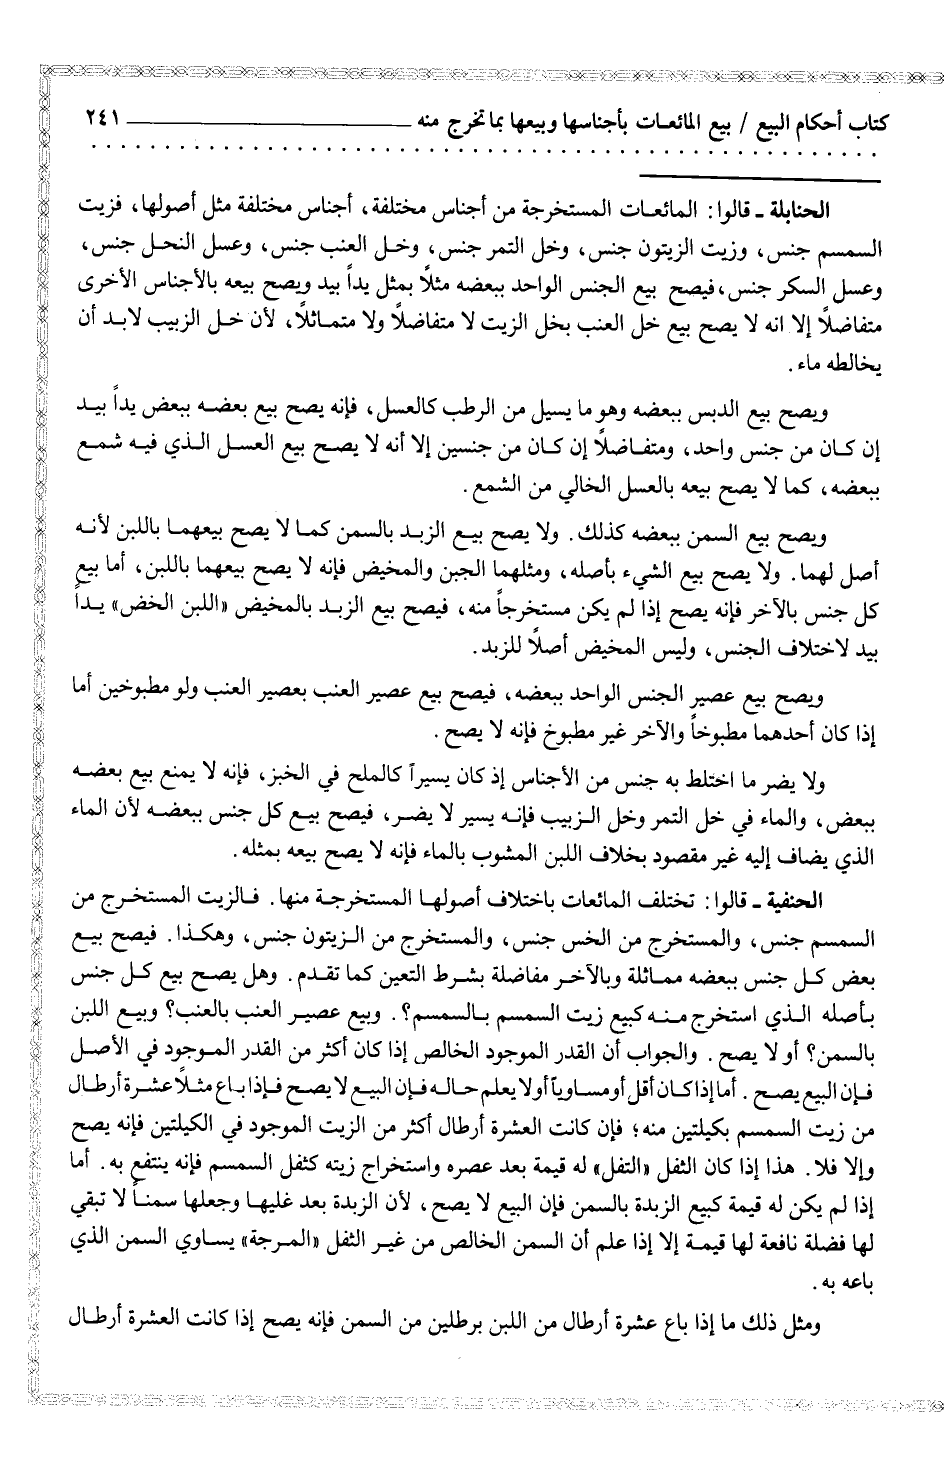 كتاب أحكام البيع / بيع المائعات بأجناسها وبيعها بما تخرج منه ٢٤١
الحنابلة - قالوا: المائعات المستخرجة من أجناس مختلفة، أجناس مختلفة مثل أصولها، فزيت
السمسم جنس، وزيت الزيتون جنس، وخل التمر جنس، وخل العنب جنس، وعسل النحل جنس،
وعسل السكر جنس، فيصح بيع الجنس الواحد ببعضه مثلاً بمثل يداً بيد ويصح بيعه بالأجناس الأخرى
متفاضلاً إلا انه لا يصح بيع خل العنب بخل الزيت لا متفاضلاً ولا متماثلاً، لأن خل الزبيب لابد أن
يخالطه ماء.
ويصح بيع الدبس ببعضه وهو ما يسيل من الرطب كالعسل، فإنه يصح بيع بعضه ببعض يداً بيد
إن كان من جنس واحد، ومتفاضلاً إن كان من جنسين إلا أنه لا يصح بيع العسل الذي فيه شمع
ببعضه، كما لا يصح بيعه بالعسل الخالي من الشمع.
ويصح بيع السمن ببعضه كذلك. ولا يصح بيع الزبد بالسمن كما لا يصح بيعهما باللبن لأنه
أصل لهما. ولا يصح بيع الشيء بأصله، ومثلهما الجبن والمخيض فإنه لا يصح بيعهما باللبن، أما بيع
كل جنس بالآخر فإنه يصح إذا لم يكن مستخرجاً منه، فيصح بيع الزبد بالمخيض «اللبن الخض» يداً
بيد لاختلاف الجنس، وليس المخيض أصلاً للزبد.
ويصح بيع عصير الجنس الواحد ببعضه، فيصح بيع عصير العنب بعصير العنب ولو مطبوخين أما
إذا كان أحدهما مطبوخاً والآخر غير مطبوخ فإنه لا يصح.
ولا يضر ما اختلط به جنس من الأجناس إذ كان يسيراً كالملح في الخبز، فإنه لا يمنع بيع بعضه
ببعض، والماء في خل التمر وخل الزبيب فإنه يسير لا يضر، فيصح بيع كل جنس ببعضه لأن الماء
الذي يضاف إليه غير مقصود بخلاف اللبن المشوب بالماء فإنه لا يصح بيعه بمثله.
الحنفية - قالوا: تختلف المائعات باختلاف أصولها المستخرجة منها. فالزيت المستخرج من
السمسم جنس، والمستخرج من الخس جنس، والمستخرج من الزيتون جنس، وهكذا. فيصح بيع
بعض كل جنس ببعضه مماثلة وبالآخر مفاضلة بشرط التعين كما تقدم. وهل يصح بيع كل جنس
بأصله الذي استخرج منه كبيع زيت السمسم بالسمسم؟. وبيع عصير العنب بالعنب؟ وبيع اللبن
بالسمن؟ أو لا يصح. والجواب أن القدر الموجود الخالص إذا كان أكثر من القدر الموجود في الأصل
فإن البيع يصح. أما إذا كان أقل أو مساوياً أو لا يعلم حاله فإن البيع لا يصح فإذا باع مثلاً عشرة أرطال
من زيت السمسم بكيلتين منه؛ فإن كانت العشرة أرطال أكثر من الزيت الموجود في الكيلتين فإنه يصح
وإلا فلا. هذا إذا كان الثفل «التفل» له قيمة بعد عصره واستخراج زيته كثفل السمسم فإنه ينتفع به. أما
إذا لم يكن له قيمة كبيع الزبدة بالسمن فإن البيع لا يصح، لأن الزبدة بعد غليها وجعلها سمناً لا تبقي
لها فضلة نافعة لها قيمة إلا إذا علم أن السمن الخالص من غير الثفل «المرجة» يساوي السمن الذي
باعه به.
ومثل ذلك ما إذا باع عشرة أرطال من اللبن برطلين من السمن فإنه يصح إذا كانت العشرة أرطال